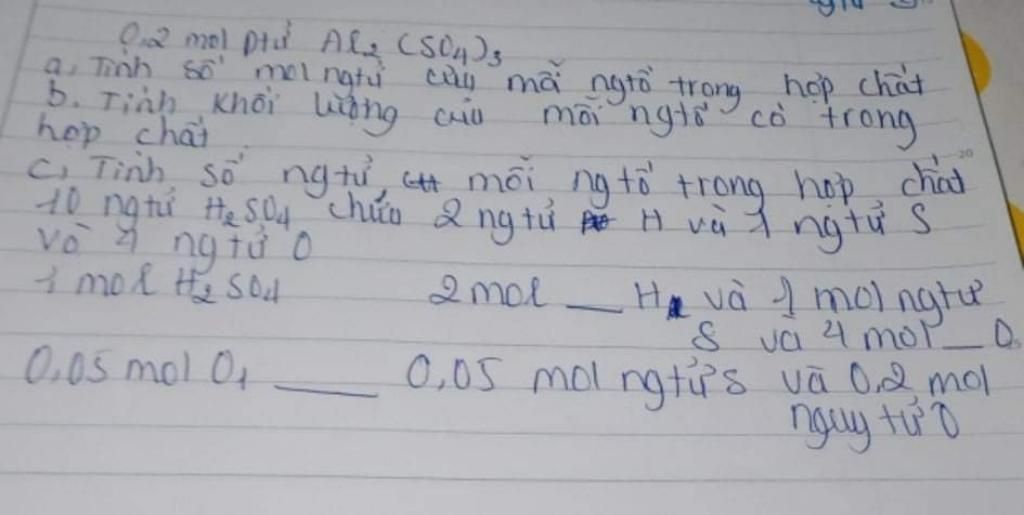 0.2 mol ptử Al2 (SO4)3
a, Tính số mol ngtử của mỗi ngtố trong hợp chất
b. Tính khối lượng của mỗi ngtố có trong
hợp chất
c, Tính số ngtử mỗi ngtố trong hợp chất
10 ngtử H2SO4 chứa 2 ngtử H và 1 ngtử S
và 4 ngtử O
1 mol H2SO4 2 mol _ H và 1 mol ngtử
S và 4 mol _ O
0,05 mol O1 _ 0,05 mol ngtử S và 0,2 mol
nguy tử O